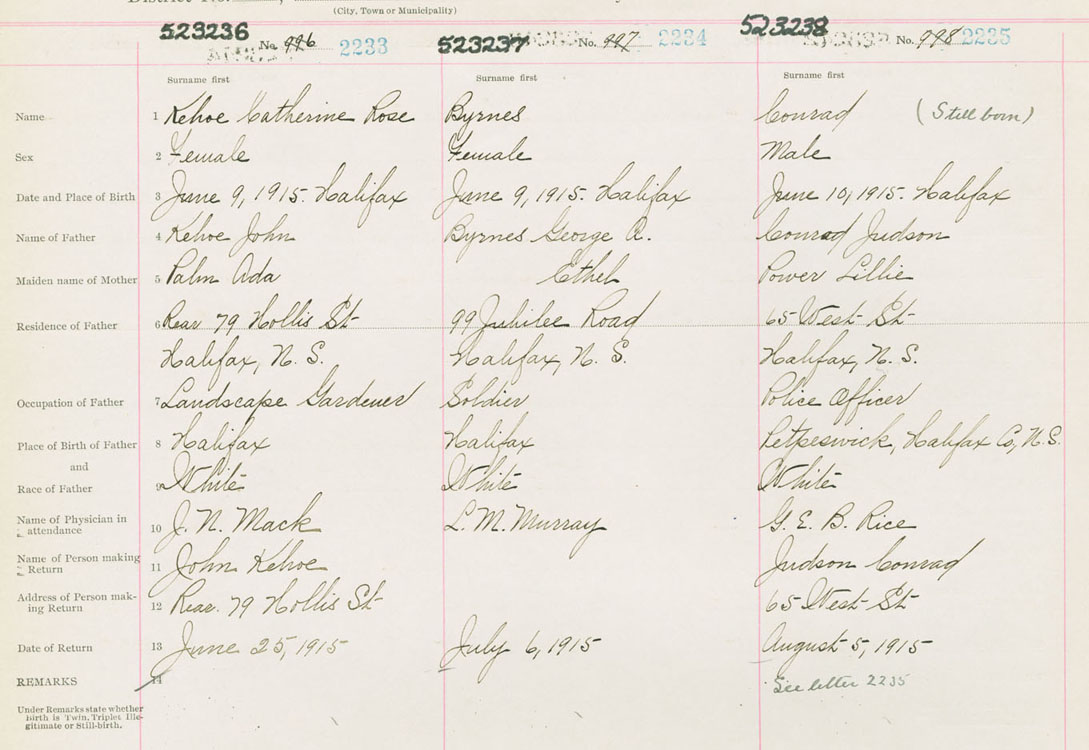 (City, Town or Municipality)
523236 No. 996 2233 523237 No. 997 2234 523238 No. 998 2235
Surname first Surname first Surname first
Name 1 Kehoe Catherine Rose Byrnes Conrad (Still born)
Sex 2 Female Female Male
Date and Place of Birth 3 June 9, 1915. Halifax June 9, 1915. Halifax June 10, 1915. Halifax
Name of Father 4 Kehoe John Byrnes George A. Conrad Judson
Maiden name of Mother 5 Palm Ada Ethel Power Lillie
Residence of Father 6 Rear 79 Hollis St 99 Jubilee Road 65 West St
Halifax, N. S. Halifax, N. S. Halifax, N. S.
Occupation of Father 7 Landscape Gardener Soldier Police Officer
Place of Birth of Father 8 Halifax Halifax Petpeswick, Halifax Co, N.S.
and
Race of Father 9 White White White
Name of Physician in
attendance 10 J. N. Mack L. M. Murray G. E. B. Rice
Name of Person making
Return 11 John Kehoe Judson Conrad
Address of Person mak-
ing Return 12 Rear. 79 Hollis St 65 West St
Date of Return 13 June 25, 1915 July 6, 1915 August 5, 1915
REMARKS 14 See letter 2235
Under Remarks state whether
Birth is Twin, Triplet Ille-
gitimate or Still-birth.